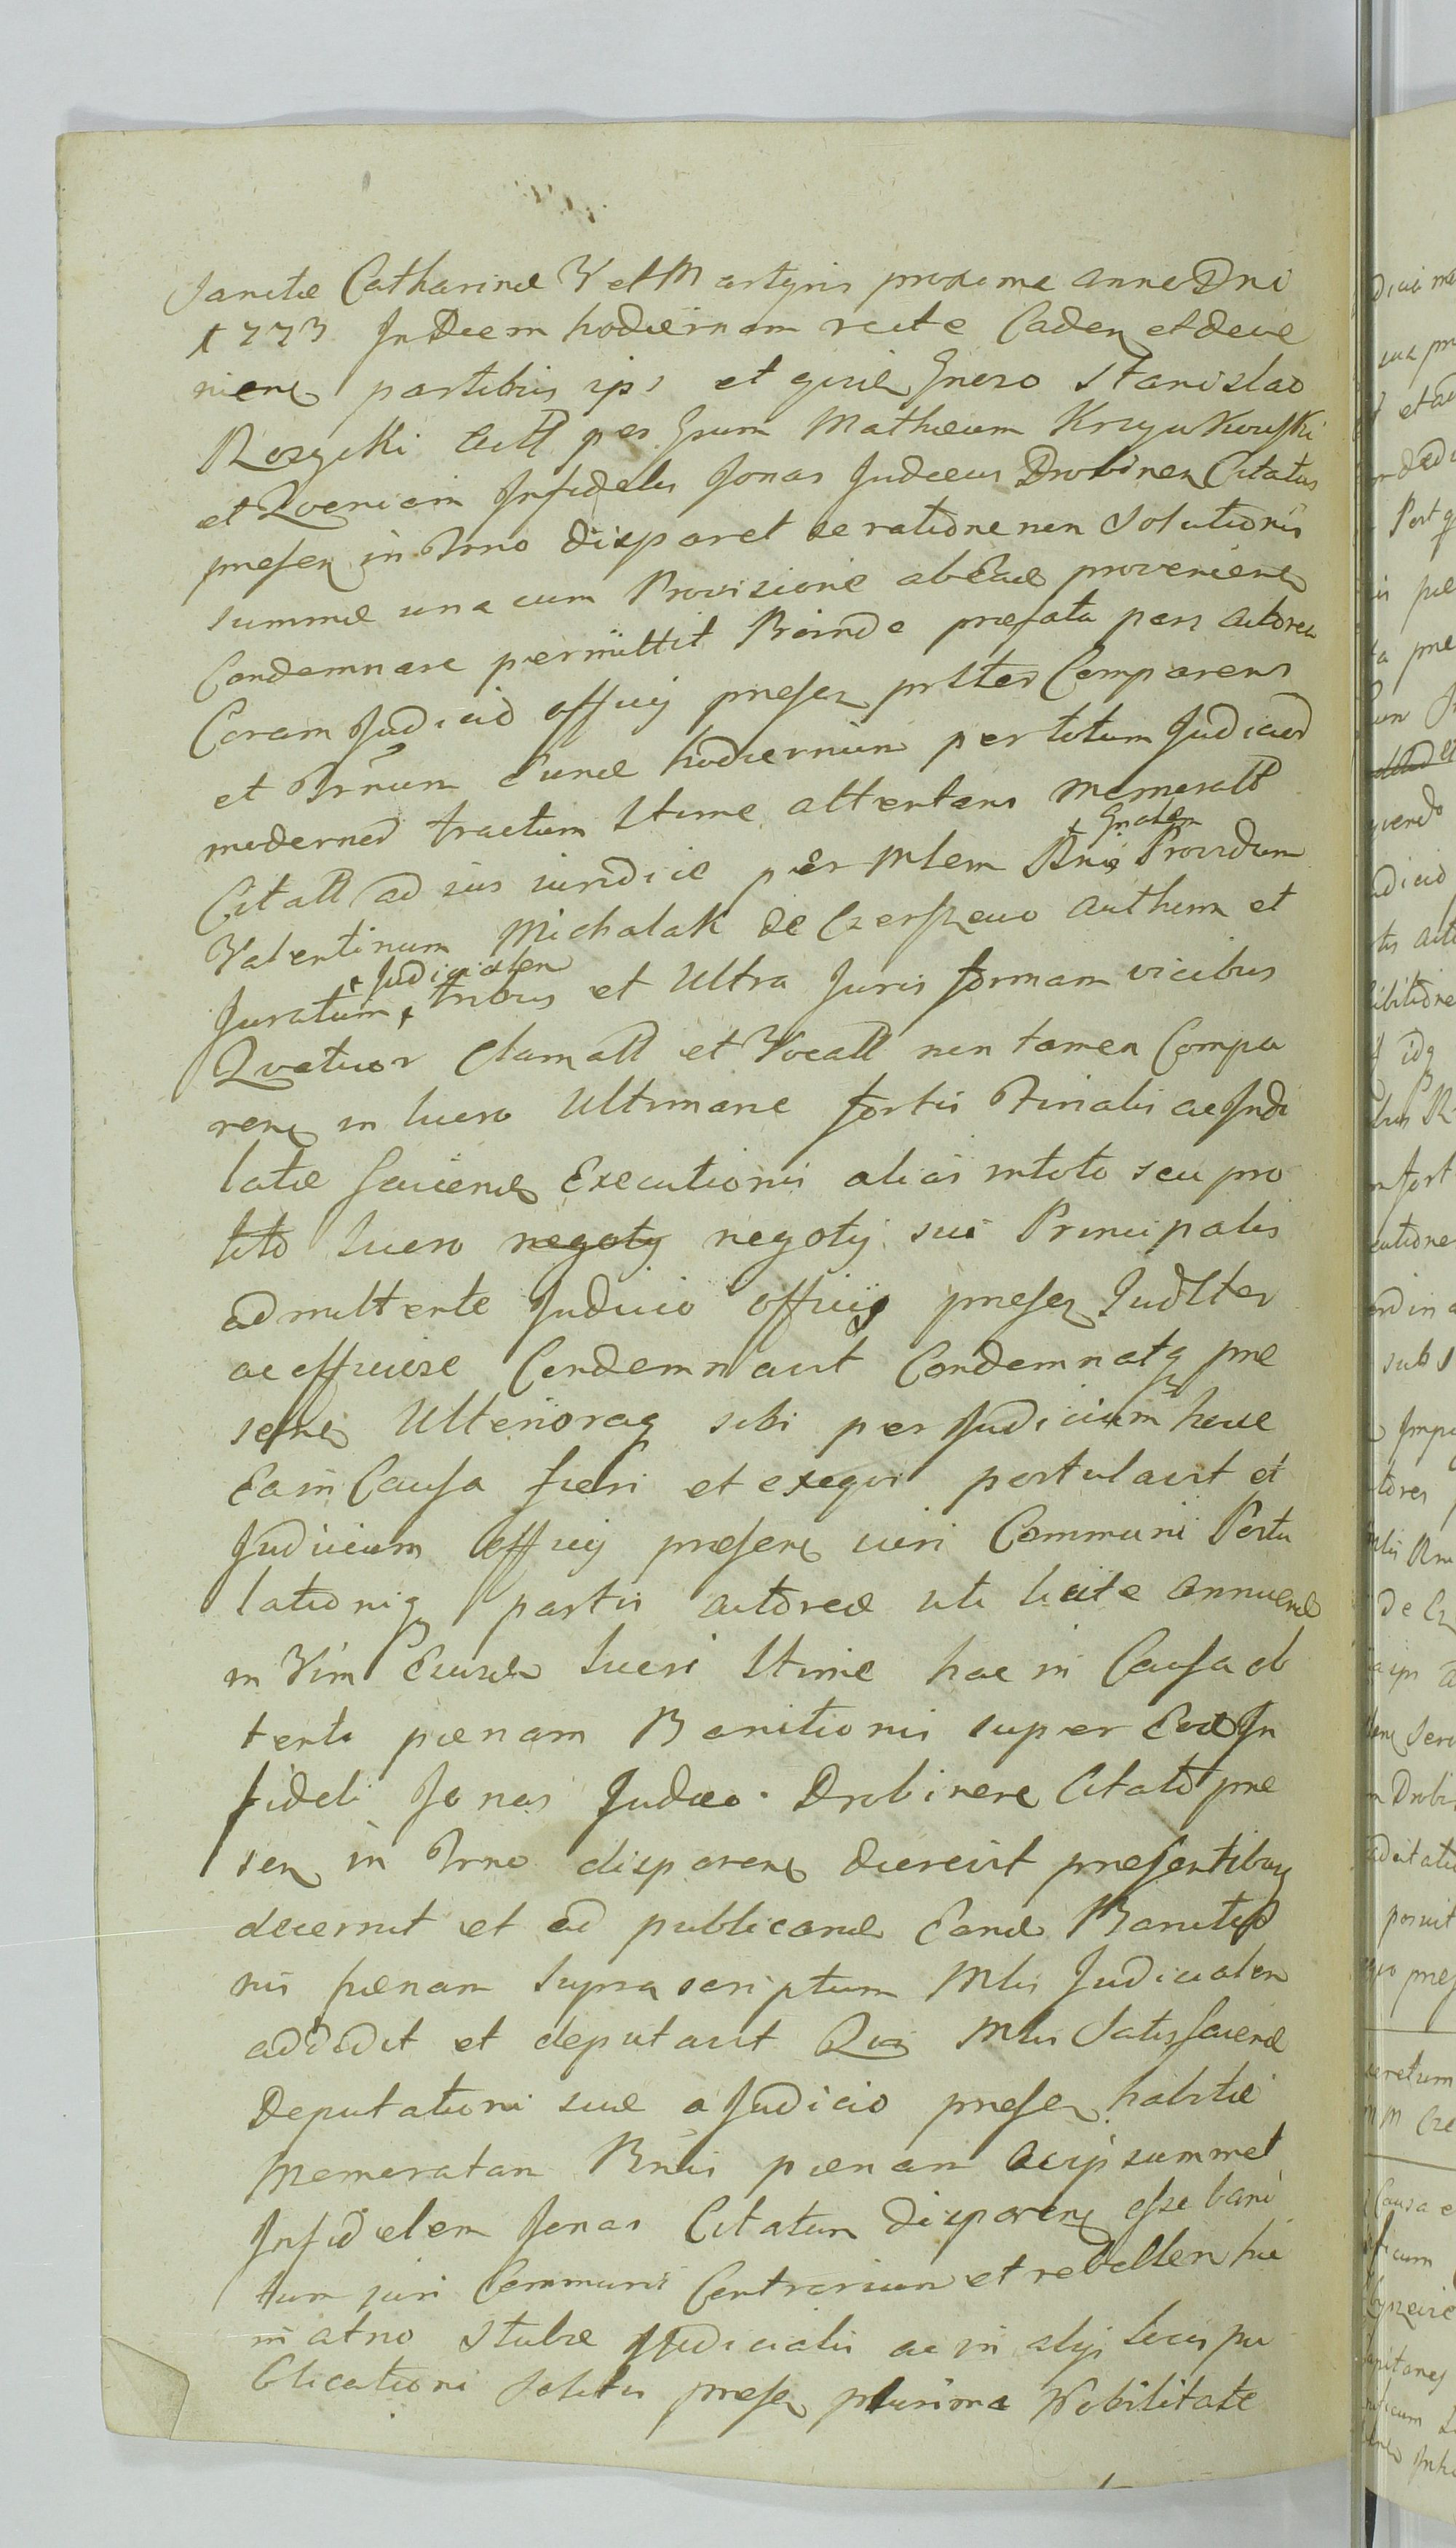 Sanctæ Catharinæ V et Martyris proxime anno Dni
1773 In Diem hodiernam recte Caden et deve
nien partibus ips et quidē Gneroso Stanislao
Rozycki Actt per Gsum Mathæum Krzywkowski
et Quoniam Infidelis Jonas Judæus Drobinen Citatus
presen in Trno disparet de ratione non Solutionis
summæ una cum Provisione ab Eade provenien
Condemnare permittit Proinde præfata pars actorea
Coram Judicio officij presen pslter Comparens
et Trnum Eunde hodiernum per totum Judicior
modernor tractum Ltime attentans memoratt
Citatt ad jus juridice per Mlem Rni + Gnalem Providum
Valentinum Michalak de Czerszewo authen et
Juratum + Judicialem tribus et Ultra Juris formam vicibus
Quatuor Clamatt et Vocatt non tamen Compa
ren in lucro Ultimariæ fortis Finalis ac Indi
latæ faciend Executionis alias in toto seu pro
toto lucro negotij negotij sui Principalis
admittente Judicio officij presen Judlter
ac efficiose Condemnavit Condemnatq præ
sen Ulterioraq sibi per Judicium hocce
Ea in Causa fieri et exequi postulavit et
Judicium officij presens juri Communi Postu
lationiq partis actoreæ uti licite annuend
in Vim Eiusde lucri Ltime hac in Causa ob
tenti pænam Banitionis super Eode In
fideli Jonas Judæo Drobinen Citato præ
sen in Trno disparen decrevit presentibusq
decernit et ad publicand Eande Banitio
nis pænam supra scriptum Mlis Judicialem
addidit et deputavit Qui Mlis Satisfaciend
Deputationi suæ a Judicio presen habitæ
Memoratam Bnis pænam ac ipsummet
Infidelem Jonas Citatum Disparen esse bani
tum juri Communi Contrarium et rebellem hic
in atrio Stubæ Judicialis ac in alijs locis pu
blicationi Solitis presen plurima Nobilitate